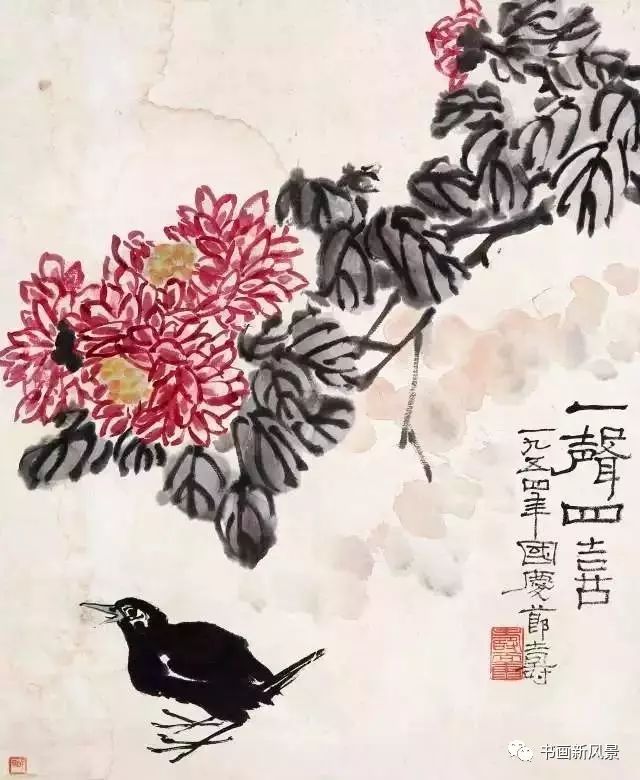 一聲四喜
一九五四年國慶節壽
书画新风景